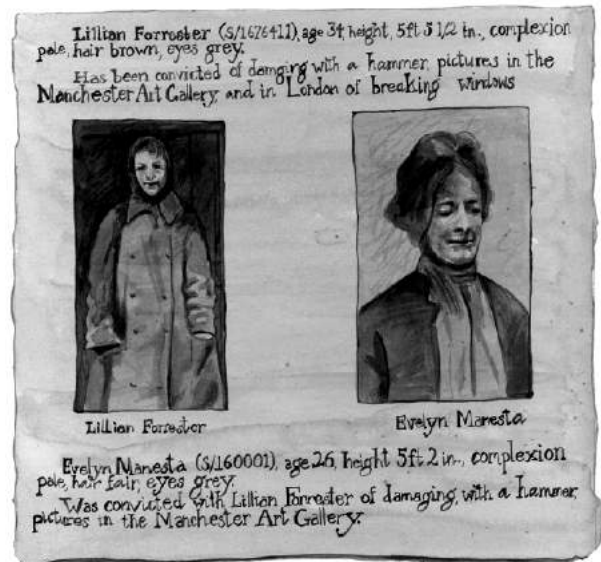 Lillian Forrester (S/1676411), age 34, height, 5ft 5 1/2 in., complexion
pale, hair brown, eyes grey.
Has been convicted of damging with a hammer, pictures in the
Manchester Art Gallery, and in London of breaking windows
Lillian Forrester
Evelyn Manesta
Evelyn Manesta (S/160001), age 26, height 5ft 2 in., complexion
pale, hair fair, eyes grey.
Was convicted with Lillian Forrester of damaging, with a hammer,
pictures in the Manchester Art Gallery.